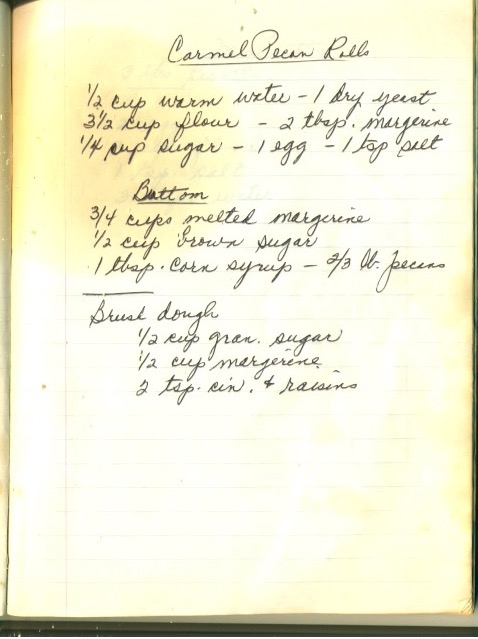 Carmel Pecan Rolls
1/2 cup warm water - 1 dry yeast
3 1/2 cup flour - 2 tbsp. margerine
1/4 cup sugar - 1 egg - 1 tsp salt
Bottom
3/4 cups melted margerine
1/2 cup brown sugar
1 tbsp. corn syrup - 2/3 lb. pecans
Brush dough
1/2 cup gran. sugar
1/2 cup margerine
2 tsp. cin. & raisins